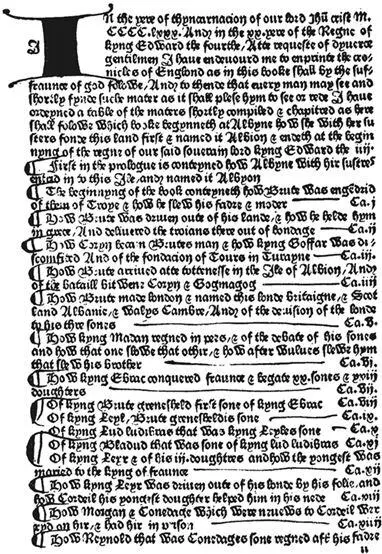 IN the yere of thyncarnacion of our lord Jhū crist M.
CCCC.lxxx. And in the xx. yere of the Regne of
kyng Edward the fourthe, Atte requeste of dyuerce
gentilmen I haue endeuourd me to enprinte the cro-
nicles of Englond as in this booke shall by the suf-
fraunce of god folowe, And to thende that euery man may see and
shortly fynde suche mater as it shall plese hym to see or rede I haue
ordeyned a table of the maters shortly compiled & chapitred as here
shall folowe Which booke begynneth at Albyne how she with hir su-
sters fonde this land first & named it Albion & endeth at the begin
nyng of the regne of our said souerain lord kyng Edward the iiij.
First in the prologue is conteyned how Albyne with hir susters
entrid in to this Ile, and named it Albyon
The beginnyng of the book conteyneth how Brute was engedrid
of them of Troye & how he slew his fadre & moder Ca.j
How Brute was driuen oute of his lande, & how he helde hym
in grece, And delivered the troians there out of bondage Ca.ij
How Coryn bcam Brutes man & how kyng Goffar was di-
scomfited And of the fondacion of Tours in Turayne Ca.iij.
How Brute arriued atte tottenesse in the Ile of Albion, And
of the bataill bitwen Coryn & Gogmagog Ca.iiij
How Brute made london & named this londe britaigne, & Scot
land Albanie, & Walys Cambre, And of the deuision of the londe
to his thre sones Ca.v.
How kyng Madan regned in pees, & of the debate of his sones
and how that one slewe that other, & how after wulues slewe hym
that slew his brother Ca.vj.
How kyng Ebrac conquered fraunce & begate xx. sones & xxiij
doughters Ca.vij
Of kyng Brute grenesheld first sone of kyng Ebrac Ca.viij
Of kyng Leyl, Brute grenesheldis sone Ca.ix.
Of kyng Lud ludibras that was kyng Leyles sone Ca.x
Of kyng Bladud that was sone of kyng lud ludibras Ca.xj
Of kyng Leyr & of his iij. doughtres and how the yongest was
maried to the kyng of fraunce Ca.xij
How kyng Leyr was driuen oute of his londe by his folie, and
how Cordeil his yongest doughter helped him in his nede Ca.xiij
How Morgan & Conedage which were nevews to Cordeil werr
eyd an hir, & had hir in prison Ca.xiiij
How Reynold that was Conedages sone regned aft his fadre